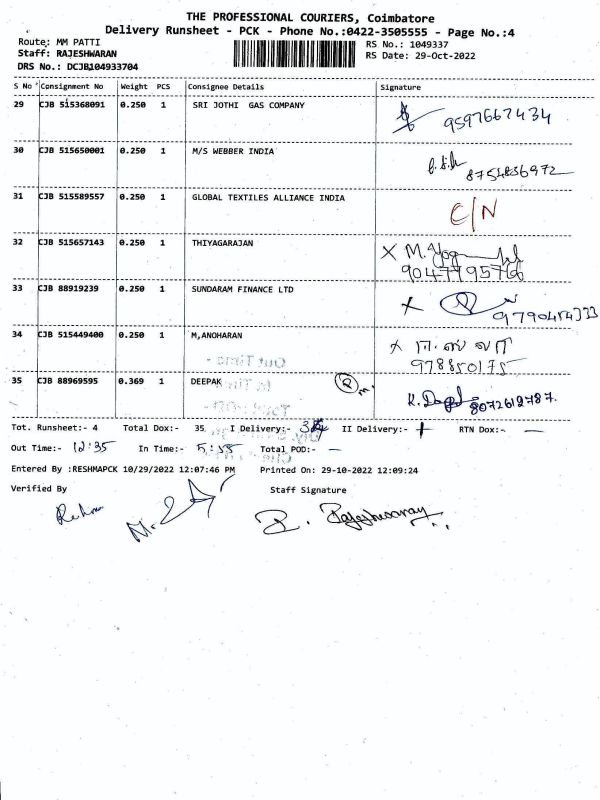 THE PROFESSIONAL COURIERS, Coimbatore
Delivery Runsheet - PCK - Phone No.:0422-3505555 - Page No.:4
Route: MM PATTI RS No.: 1049337
Staff: RAJESHWARAN RS Date: 29-Oct-2022
DRS No.: DCJB104933704
S No Consignment No Weight PCS Consignee Details Signature
29 CJB 515368091 0.250 1 SRI JOTHI GAS COMPANY 9597667434
30 CJB 515650001 0.250 1 M/S WEBBER INDIA 8754836972
31 CJB 515589557 0.250 1 GLOBAL TEXTILES ALLIANCE INDIA C/N
32 CJB 515657143 0.250 1 THIYAGARAJAN X M.
33 CJB 88919239 0.250 1 SUNDARAM FINANCE LTD X 9790454333
34 CJB 515449400 0.250 1 M,ANOHARAN X
978850175
35 CJB 88969595 0.369 1 DEEPAK 8072612787.
Tot. Runsheet:- 4 Total Dox:- 35 I Delivery:- II Delivery:- RTN Dox:- -
Out Time:- 12:35 In Time:- 5:55 Total POD:- -
Entered By :RESHMAPCK 10/29/2022 12:07:46 PM Printed On: 29-10-2022 12:09:24
Verified By Staff Signature
R. Rajeshwaran